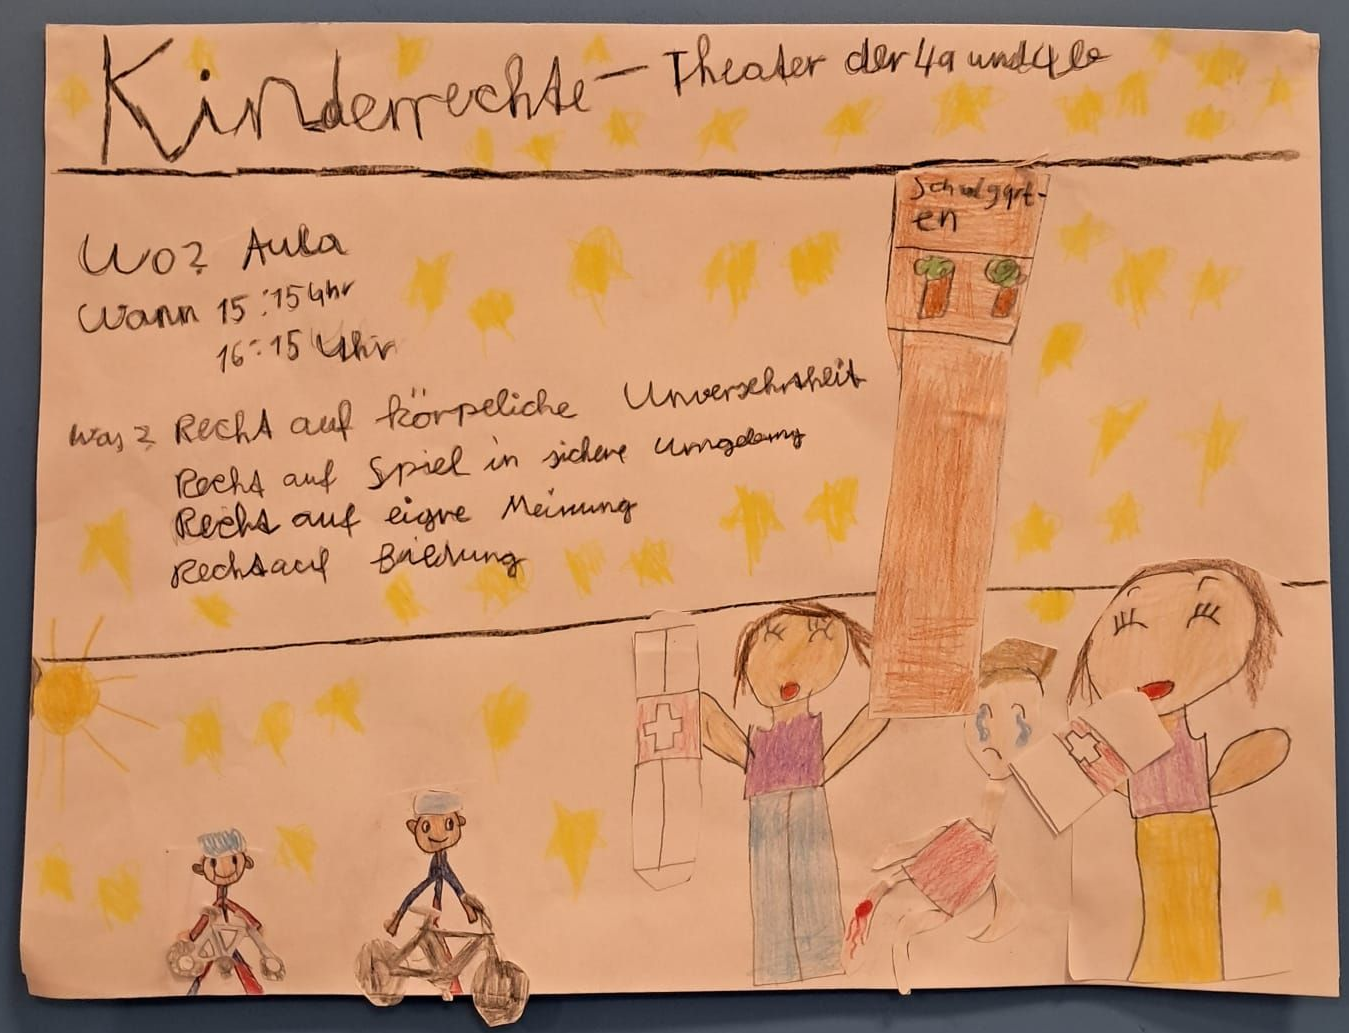 Kinderrechte - Theater der 4a und 4b
Schulgart-
en
Wo? Aula
Wann 15:15 Uhr
16:15 Uhr
Was? Recht auf körpeliche Unversehrtheit
Recht auf Spiel in sichere Umgebung
Recht auf eigne Meinung
Recht auf Bildung